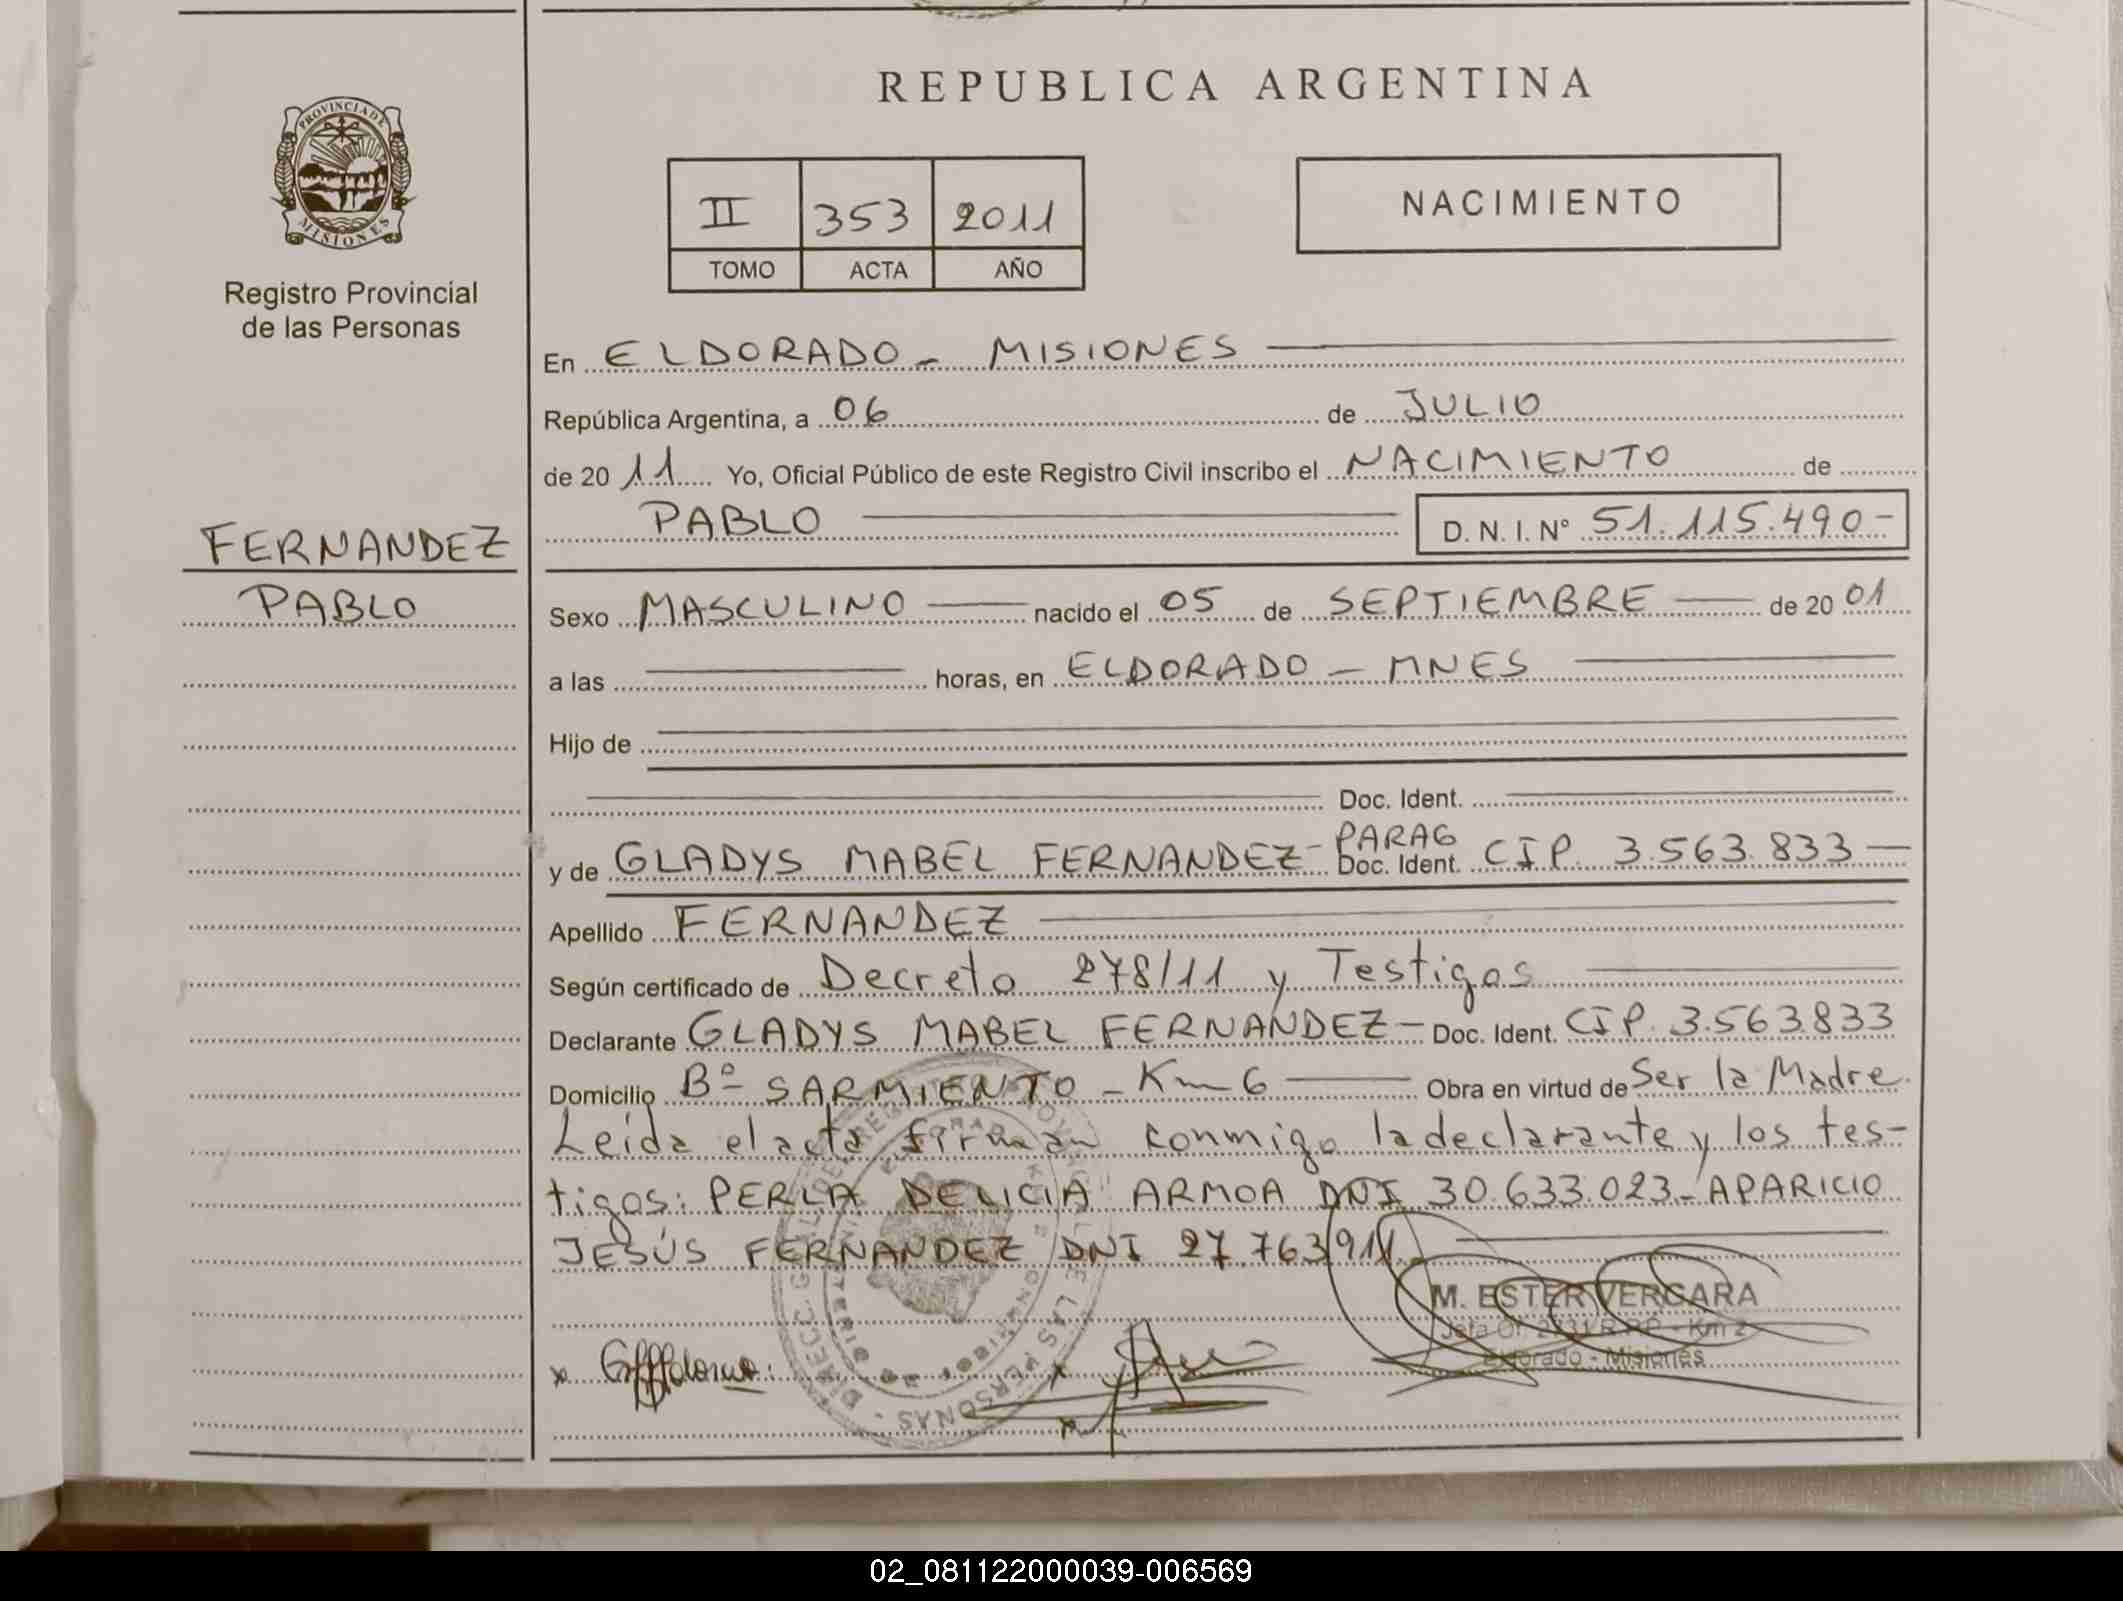 REPUBLICA ARGENTINA
PROVINCIA DE
MISIONES
Registro Provincial
de las Personas
II 353 2011
TOMO ACTA AÑO
NACIMIENTO
En ELDORADO - MISIONES
República Argentina, a 06 de JULIO
de 2011 Yo, Oficial Público de este Registro Civil inscribo el NACIMIENTO de
PABLO D. N. I. Nº 51.115.490-
FERNANDEZ
PABLO
Sexo MASCULINO nacido el 05 de SEPTIEMBRE de 2001
a las horas, en ELDORADO - MNES
Hijo de
Doc. Ident.
y de GLADYS MABEL FERNANDEZ- PARAG Doc. Ident. CIP. 3.563.833
Apellido FERNANDEZ
Según certificado de Decreto 278/11 y Testigos
Declarante GLADYS MABEL FERNANDEZ- Doc. Ident. CIP. 3.563.833
Domicilio Bº SARMIENTO - Km 6 Obra en virtud de Ser la Madre.
Leída el acta firman conmigo la declarante y los tes-
tigos: PERLA DELICIA ARMOA DNI 30.633.023- APARICIO
JESÚS FERNANDEZ DNI 27.763.911.
M. ESTER VERGARA
Jefa Of. 2731 R.P.P. - Km 2
Eldorado - Misiones
02_081122000039-006569